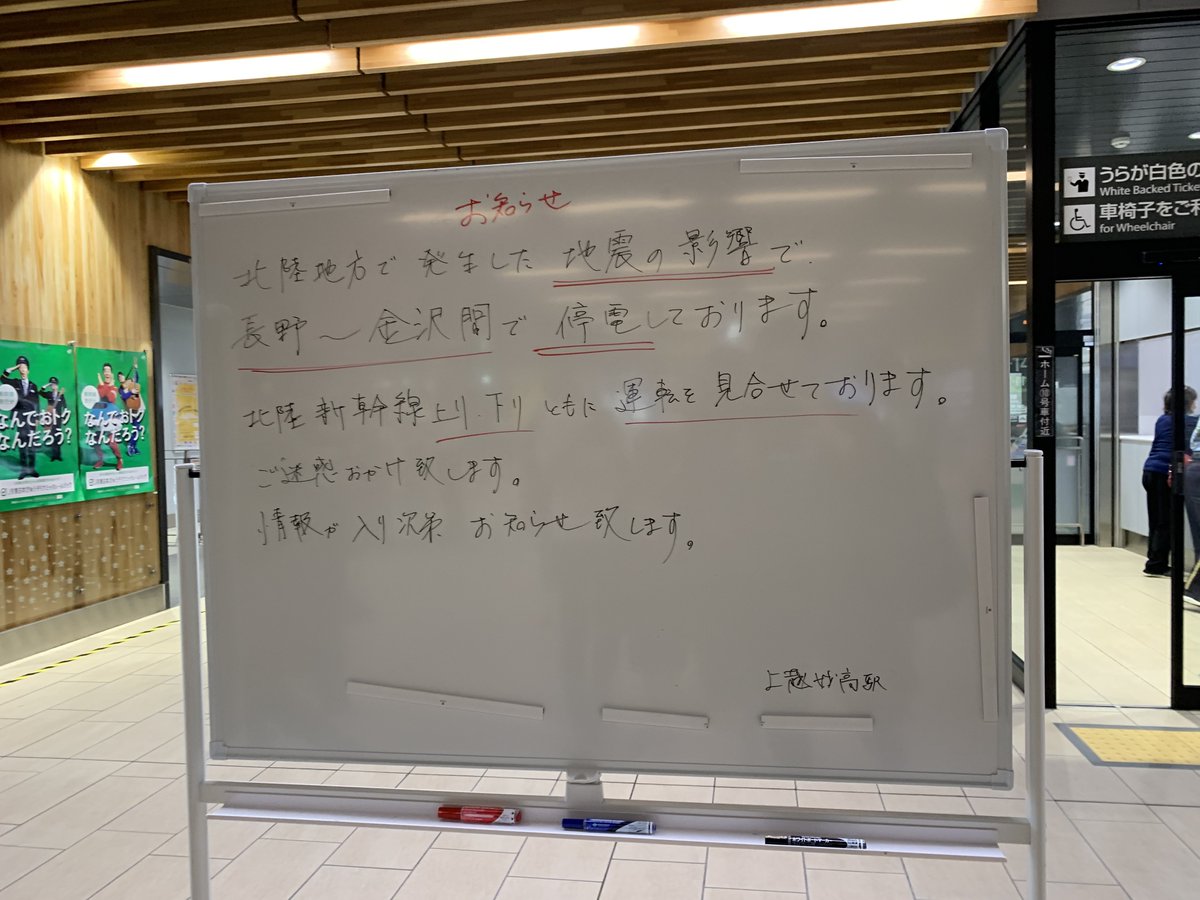 お知らせ
北陸地方で発生した地震の影響で、
長野～金沢間で停電しております。
北陸新幹線上り、下りともに運転を見合せております。
ご迷惑おかけ致します。
情報が入り次第お知らせ致します。
上越妙高駅
うらが白色の
White Backed Ticke
車椅子をご利
for Wheelchair
ホーム⑩号車付近
14
なんでおトク
なんだろう?
なんでおトク
なんだろう?
ホワイトボードマーカー